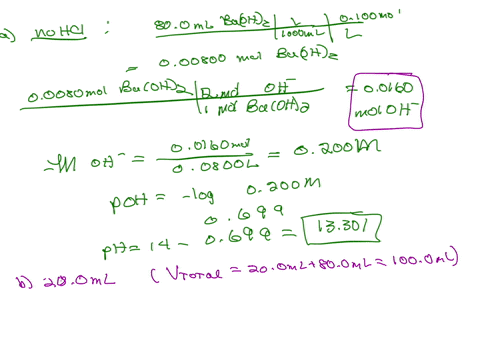 a) no HCl : 80.0 mL Ba(OH)2 | L | 0.100 mol
1000mL | L
= 0.00800 mol Ba(OH)2
0.0080 mol Ba(OH)2 | 2 mol OH⁻ = 0.0160
1 mol Ba(OH)2 mol OH⁻
M OH⁻ = 0.0160 mol = 0.200M
0.0800L
pOH = -log 0.200M
0.699
pH = 14 - 0.699 = 13.301
b) 20.0mL (VTOTAL = 20.0mL+80.0mL = 100.0mL)